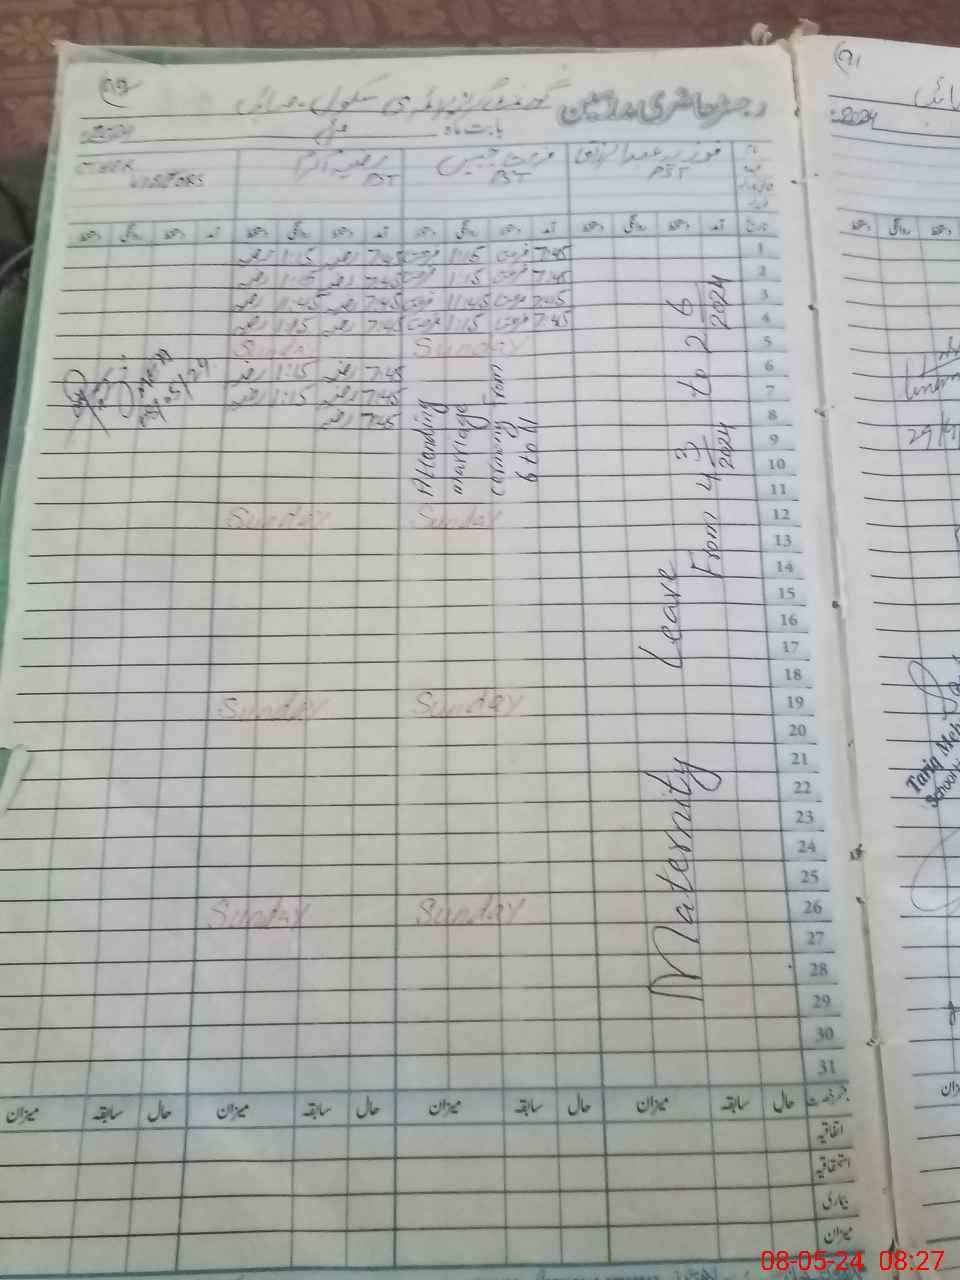 رجسٹر حاضری مدرسین
گورنمنٹ گرلز پرائمری سکول
بابت ماہ مئی 2024
فوزیہ عبدالرزاق
PST
فرحت جبیں
PST
رضیہ اکرم
PST
OTHER
VISITORS
آمد دستخط روانگی دستخط آمد دستخط روانگی دستخط آمد دستخط روانگی دستخط آمد دستخط روانگی دستخط
1 7:45 فرحت 1:15 فرحت 7:45 رضیہ 1:15 رضیہ
2 7:45 فرحت 1:15 فرحت 7:45 رضیہ 1:15 رضیہ
3 7:45 فرحت 11:45 فرحت 7:45 رضیہ 11:45 رضیہ
4 7:45 فرحت 1:15 فرحت 7:45 رضیہ 1:15 رضیہ
5 Sunday Sunday
6 7:45 رضیہ 1:15 رضیہ
7 7:45 رضیہ 1:15 رضیہ
8 7:45 رضیہ
9
10
11
12 Sunday Sunday
13
14
15
16
17
18
19 Sunday Sunday
20
21
22
23
24
25
26 Sunday Sunday
27
28
29
30
31
Maternity Leave
From 4 3/2024 to 2 6/2024
Attending
marriage
from
6 to 11
حال سابقہ میزان حال سابقہ میزان حال سابقہ میزان حال سابقہ میزان
اتفاقیہ
استحقاقیہ
بیماری
میزان
2024
Tariq Meh
School
08-05-24 08:27